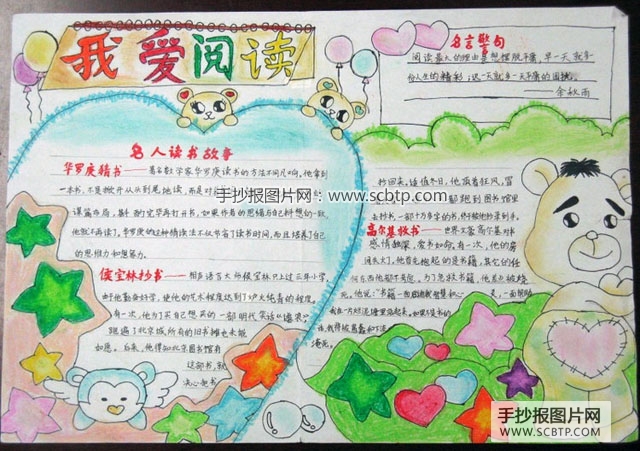 我爱阅读
名言警句
阅读最大的理由是想摆脱平庸,早一天就多
一份人生的精彩;迟一天就多一天平庸的困扰。
余秋雨
名人读书故事
华罗庚猜书——著名数学家华罗庚读书的方法不同凡响。他拿到
一本书,不是翻开从头到尾地读,而是对
谋篇布局,斟酌完毕再打开书,如果作者的思路与自己料想的一致,
他就不再读了。华罗庚的这种猜读法不仅节省了读书时间,而且培养了自己
的思维力和想象力。
侯宝林抄书——相声语言大师侯宝林只上过三年小学,
由于他勤奋好学,使他的艺术程度达到了炉火纯青的程度。
有一次,他为了买自己想买的一部明代笑话书《谑浪》
跑遍了北京城所有的旧书摊也未能
如愿。后来,他得知北京图书馆有
这部书,就
决心把书
抄回来。适值冬日,他顶着狂风,冒
都跑到图书馆里
去抄书,一部十万多字的书,终于被他抄录到手。
高尔基救书——世界文豪高尔基对书
感情独深,爱书如命。有一次,他的房
间失火了,他首先抱起的是书籍,其它的任
何东西他都不考虑。为了抢救书籍,他差点被烧
死。他说:"书籍一面启示我智慧和心
,一面帮助
我在一片烂泥塘里站起来,如果不是书的
话,我将被愚蠢和下流
淹死。
手抄报图片网:www.scbtp.com
手抄报图片网
WWW.SCBTP.COM